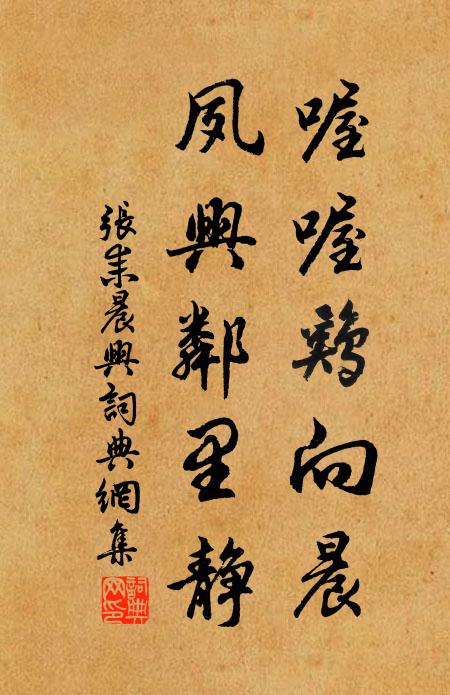 喔喔鷄向晨
夙興鄰里静
張耒晨興詞典網集
詞典网印